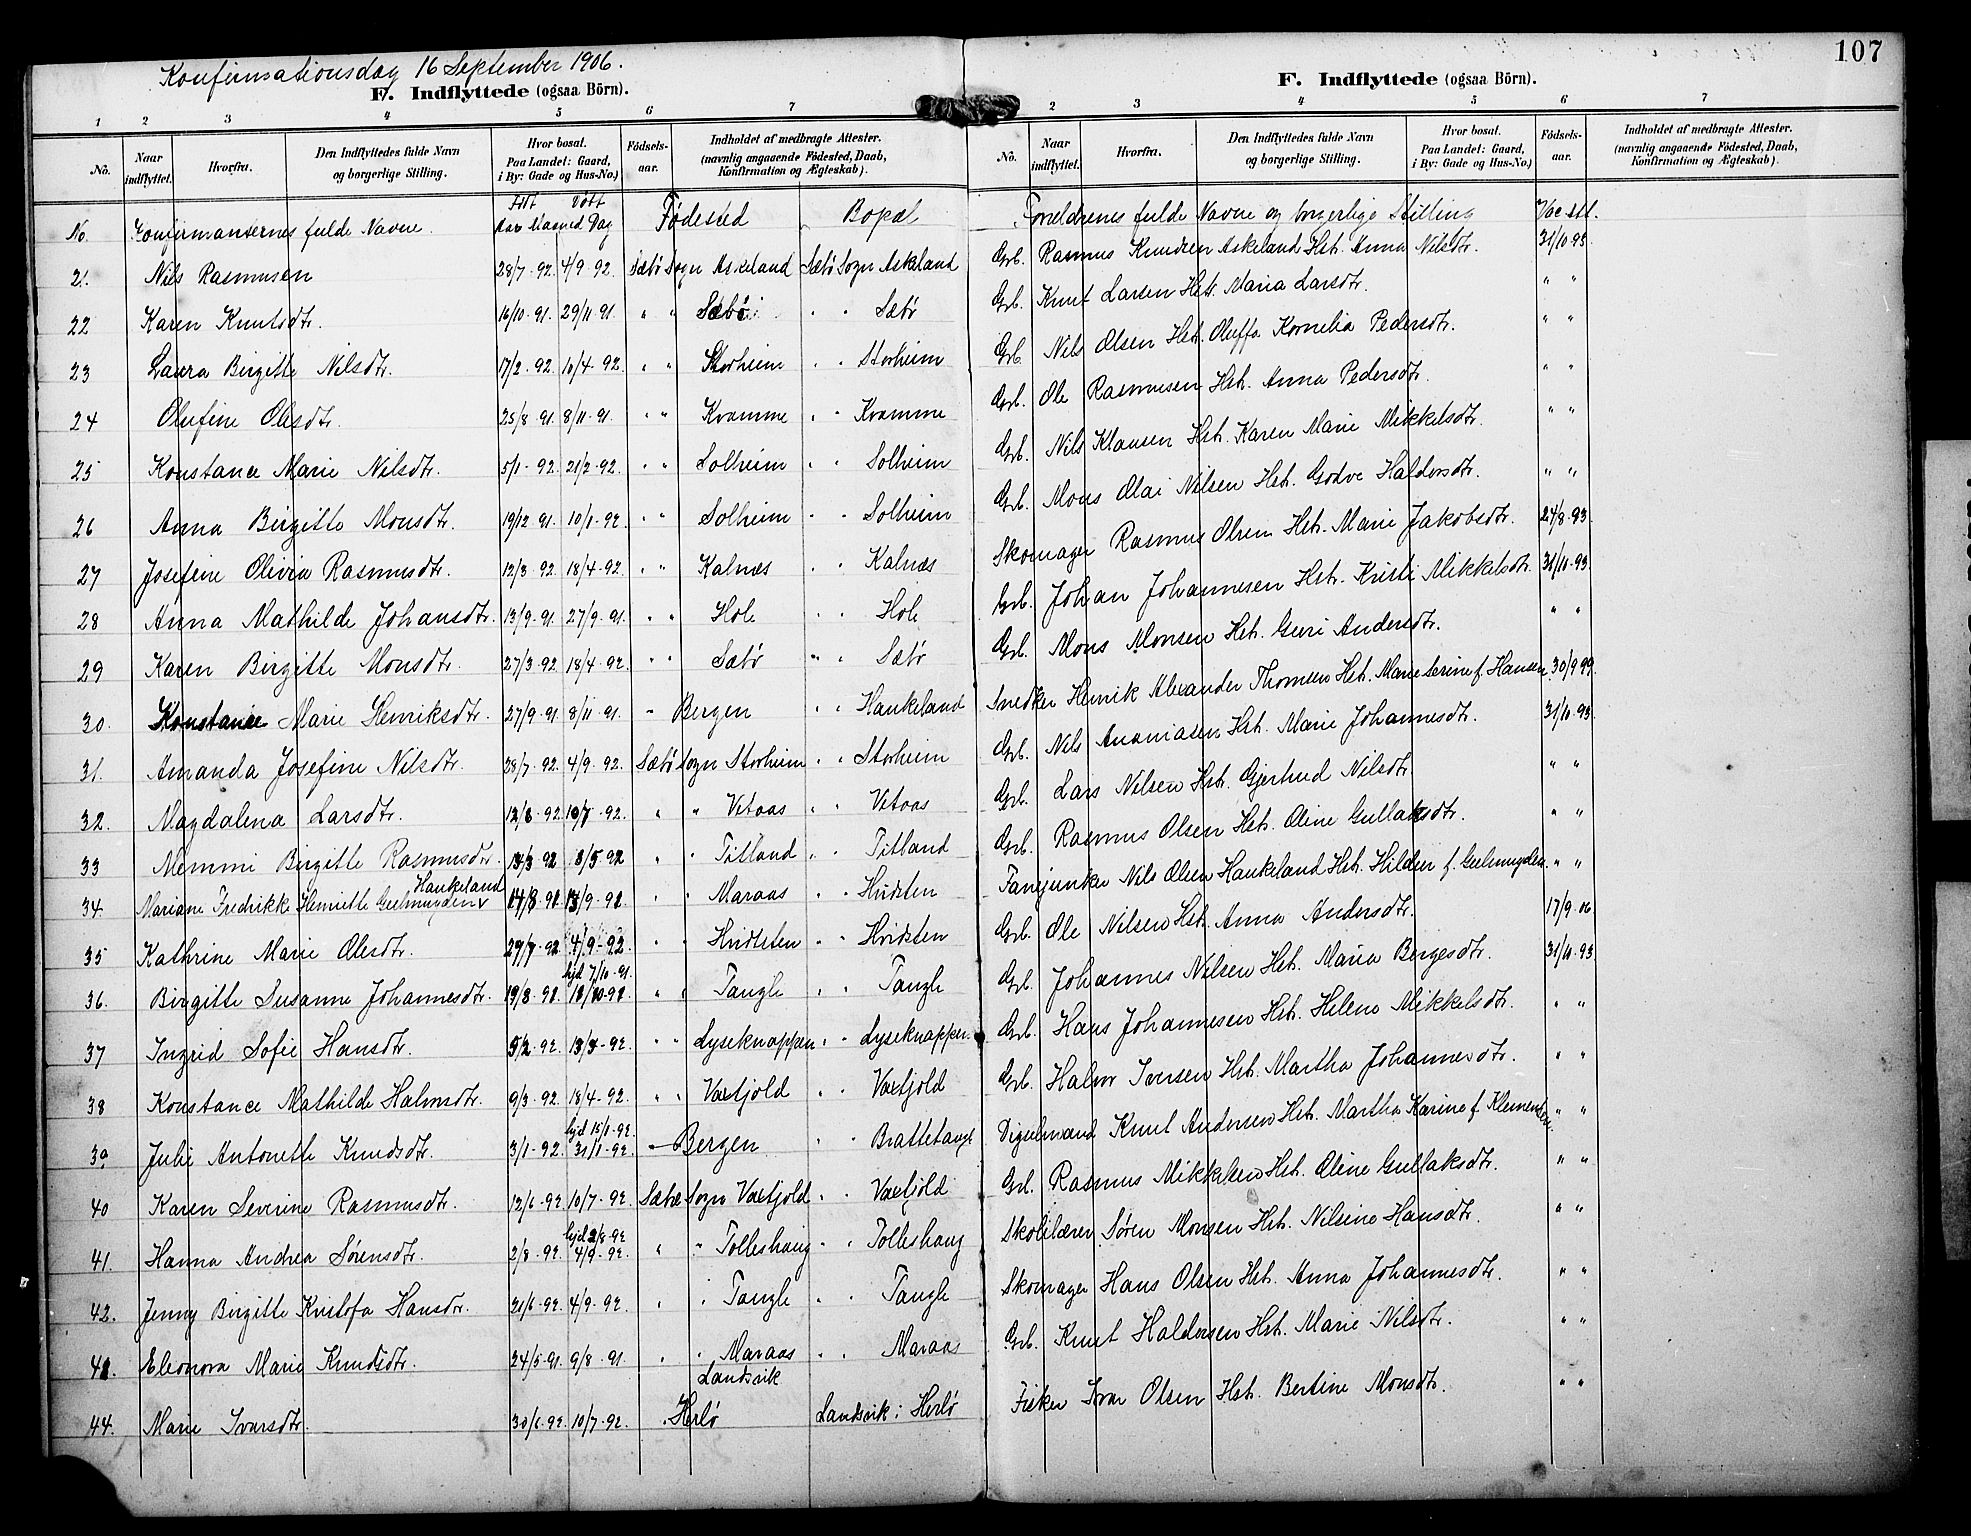 107
Konfirmationsdag 16 September 1906.
F. Indflyttede (ogsaa Börn).
1 2 3 4 5 6 7
No. Naar indflyttet. Hvorfra. Den Indflyttedes fulde Navn og borgerlige Stilling. Hvor bosat. Paa Landet: Gaard, i By: Gade og Hus-No.) Fødsels-aar. Indholdet af medbragte Attester. (navnlig angaaende Födested, Daab, Konfirmation og Ægteskab).
No. Konfirmanternes fulde Navne. Født Døbt Aar Maaned Dag Fødested Bopæl
21. Nils Rasmusen 28/7-92. 4/9-92. Sæbø Sogn Askeland Sæbø Sogn Askeland
22 Karen Knutsdtr. 16/10-91. 29/11-91 " " Sæbø " " Sæbø
23 Laura Birgitte Nilsdtr. 17/2-92. 10/4-92. " " Storheim " " Storheim
24 Olufine Olsdtr. 25/8-91. 8/11-91. " " Kvamme " " Kvamme
25 Konstance Marie Nilsdtr. 5/1-92. 21/2-92. " " Solheim " " Solheim
26 Anna Birgitte Monsdtr. 19/12-91. 10/1-92. " " Solheim " " Solheim
27 Josefine Olivia Rasmusdtr. 12/3-92. 18/4-92. " " Kalnæs " " Kalnæs
28 Anna Mathilde Johansdtr. 13/9-91. 27/9-91. " " Hole " " Hole
29 Karen Birgitte Monsdtr. 27/3-92. 18/4-92. " " Sæbø " " Sæbø
30. Konstance Marie Henriksdtr. 27/9-91. 8/11-91. " Bergen " " Haukeland
31. Amanda Josefine Nilsdtr. 28/7-92. 4/9-92. Sæbø Sogn Storheim " " Storheim
32. Magdalena Larsdtr. 12/6-92. 10/7-92. " " Vetaas " " Vetaas
33 Memmi Birgitte Rasmusdtr. 8/5 92 " " Titland " " Titland
34. Mariane Fredrikke Henriette Geelmuyden Haukeland " " Maraas " " Hvidsten
35 Kathrine Marie Olsdtr. 4/9-92 " " Hvidsten " " Hvidsten
36. Birgitte Susanne Johannesdtr. hjd 7/10-91. " " Tangle " " Tangle
37 Ingrid Sofie Hansdtr. 5/2-92. 13/3-92. " " Lyseknappen " " Lyseknappen
38 Konstance Mathilde Halvorsdtr. 9/3-92. 18/4-92. " " Vaxtjold " " Vaxtjold
39 Julie Antonette Knudsdtr. 3/1-92. hjd 15/1-92. 31/1-92. " Bergen " " Brattetangl
40 Karen Severine Rasmusdtr. 12/6-92. 10/7-92. Sæbø Sogn Vaxtjold " " Vaxtjold
41. Hanna Andrea Sørensdtr. 2/8-92. hjd 2/8-92 4/9-92. " " Tolleshaug " " Tolleshaug
42. Jenny Birgitte Kristofa Hansdtr. 21/6-92. 4/9-92. " " Tangle " " Tangle
Eleonora Marie Knudsdtr. 24/5-91. 9/8-91. " " Maraas " " Maraas
44. Marie Ivarsdtr. 30/6-92. 10/7-92. Landsvik Herlø Landsvik i Herlø
F. Indflyttede (ogsaa Börn).
2 3 4 5 6 7
No. Naar indflyttet. Hvorfra. Den Indflyttedes fulde Navn og borgerlige Stilling. Hvor bosat. Paa Landet: Gaard, i By: Gade og Hus-No.) Fødsels-aar. Indholdet af medbragte Attester. (navnlig angaaende Födested, Daab, Konfirmation og Ægteskab).
Foreldrenes fulde Navne og borgerlige Stilling Vac. att.
Grb. Rasmus Knudsen Askeland Hst. Anna Nilsdtr. 31/10-93.
Grb. Knut Larsen Hst. Maria Larsdtr. " "
Grb. Nils Olsen Hst. Oluffa Kornelia Pedersdtr. " "
Grb. Ole Rasmusen Hst. Anna Pedersdtr. " "
Grb. Nils Klausen Hst. Karen Marie Mikkelsdtr. " "
Grb. Mons Olai Nilsen Hst. Godve Haldorsdtr. " "
Skomager Rasmus Olsen Hst. Marie Jakobsdtr. 24/8-93.
Grb. Johan Johannesen Hst. Kristi Mikkelsdtr. 31/10-93.
Grb. Mons Monsen Hst. Guri Andersdtr. " "
Snedker Henrik Alexander Thomsen Hst. Marie Serine f. Hansen. 30/9 99.
Grb. Nils Ananiasen Hst. Marie Johannesdtr. 31/10-93.
Grb. Lars Nilsen Hst. Gjertrud Nilsdtr. " "
Grb. Rasmus Olsen Hst. Oline Gullaksdtr. " "
Fanejunker Nils Olsen Haukeland Hst. Hildur f. Geelmuyden. " "
Grb. Ole Nilsen Hst. Anna Andersdtr. 17/9-06.
Grb. Johannes Nilsen Hst. Maria Børgesdtr. 31/10-93
Grb. Hans Johannesen Hst. Helene Mikkelsdtr. " "
Grb. Halvor Iversen Hst. Martha Johannesdtr. " "
Knut Andersen Hst. Martha Karine f. Klementsen. " "
Grb. Rasmus Mikkelsen Hst. Oline Gullaksdtr. " "
Skolelærer Søren Monsen Hst. Nilsine Hansdtr. " "
Skomager Hans Olsen Hst. Anna Johannesdtr. " "
Grb. Knut Haldorsen Hst. Marie Nilsdtr. " "
Fisker Ivar Olsen Hst. Bertine Monsdtr. " "